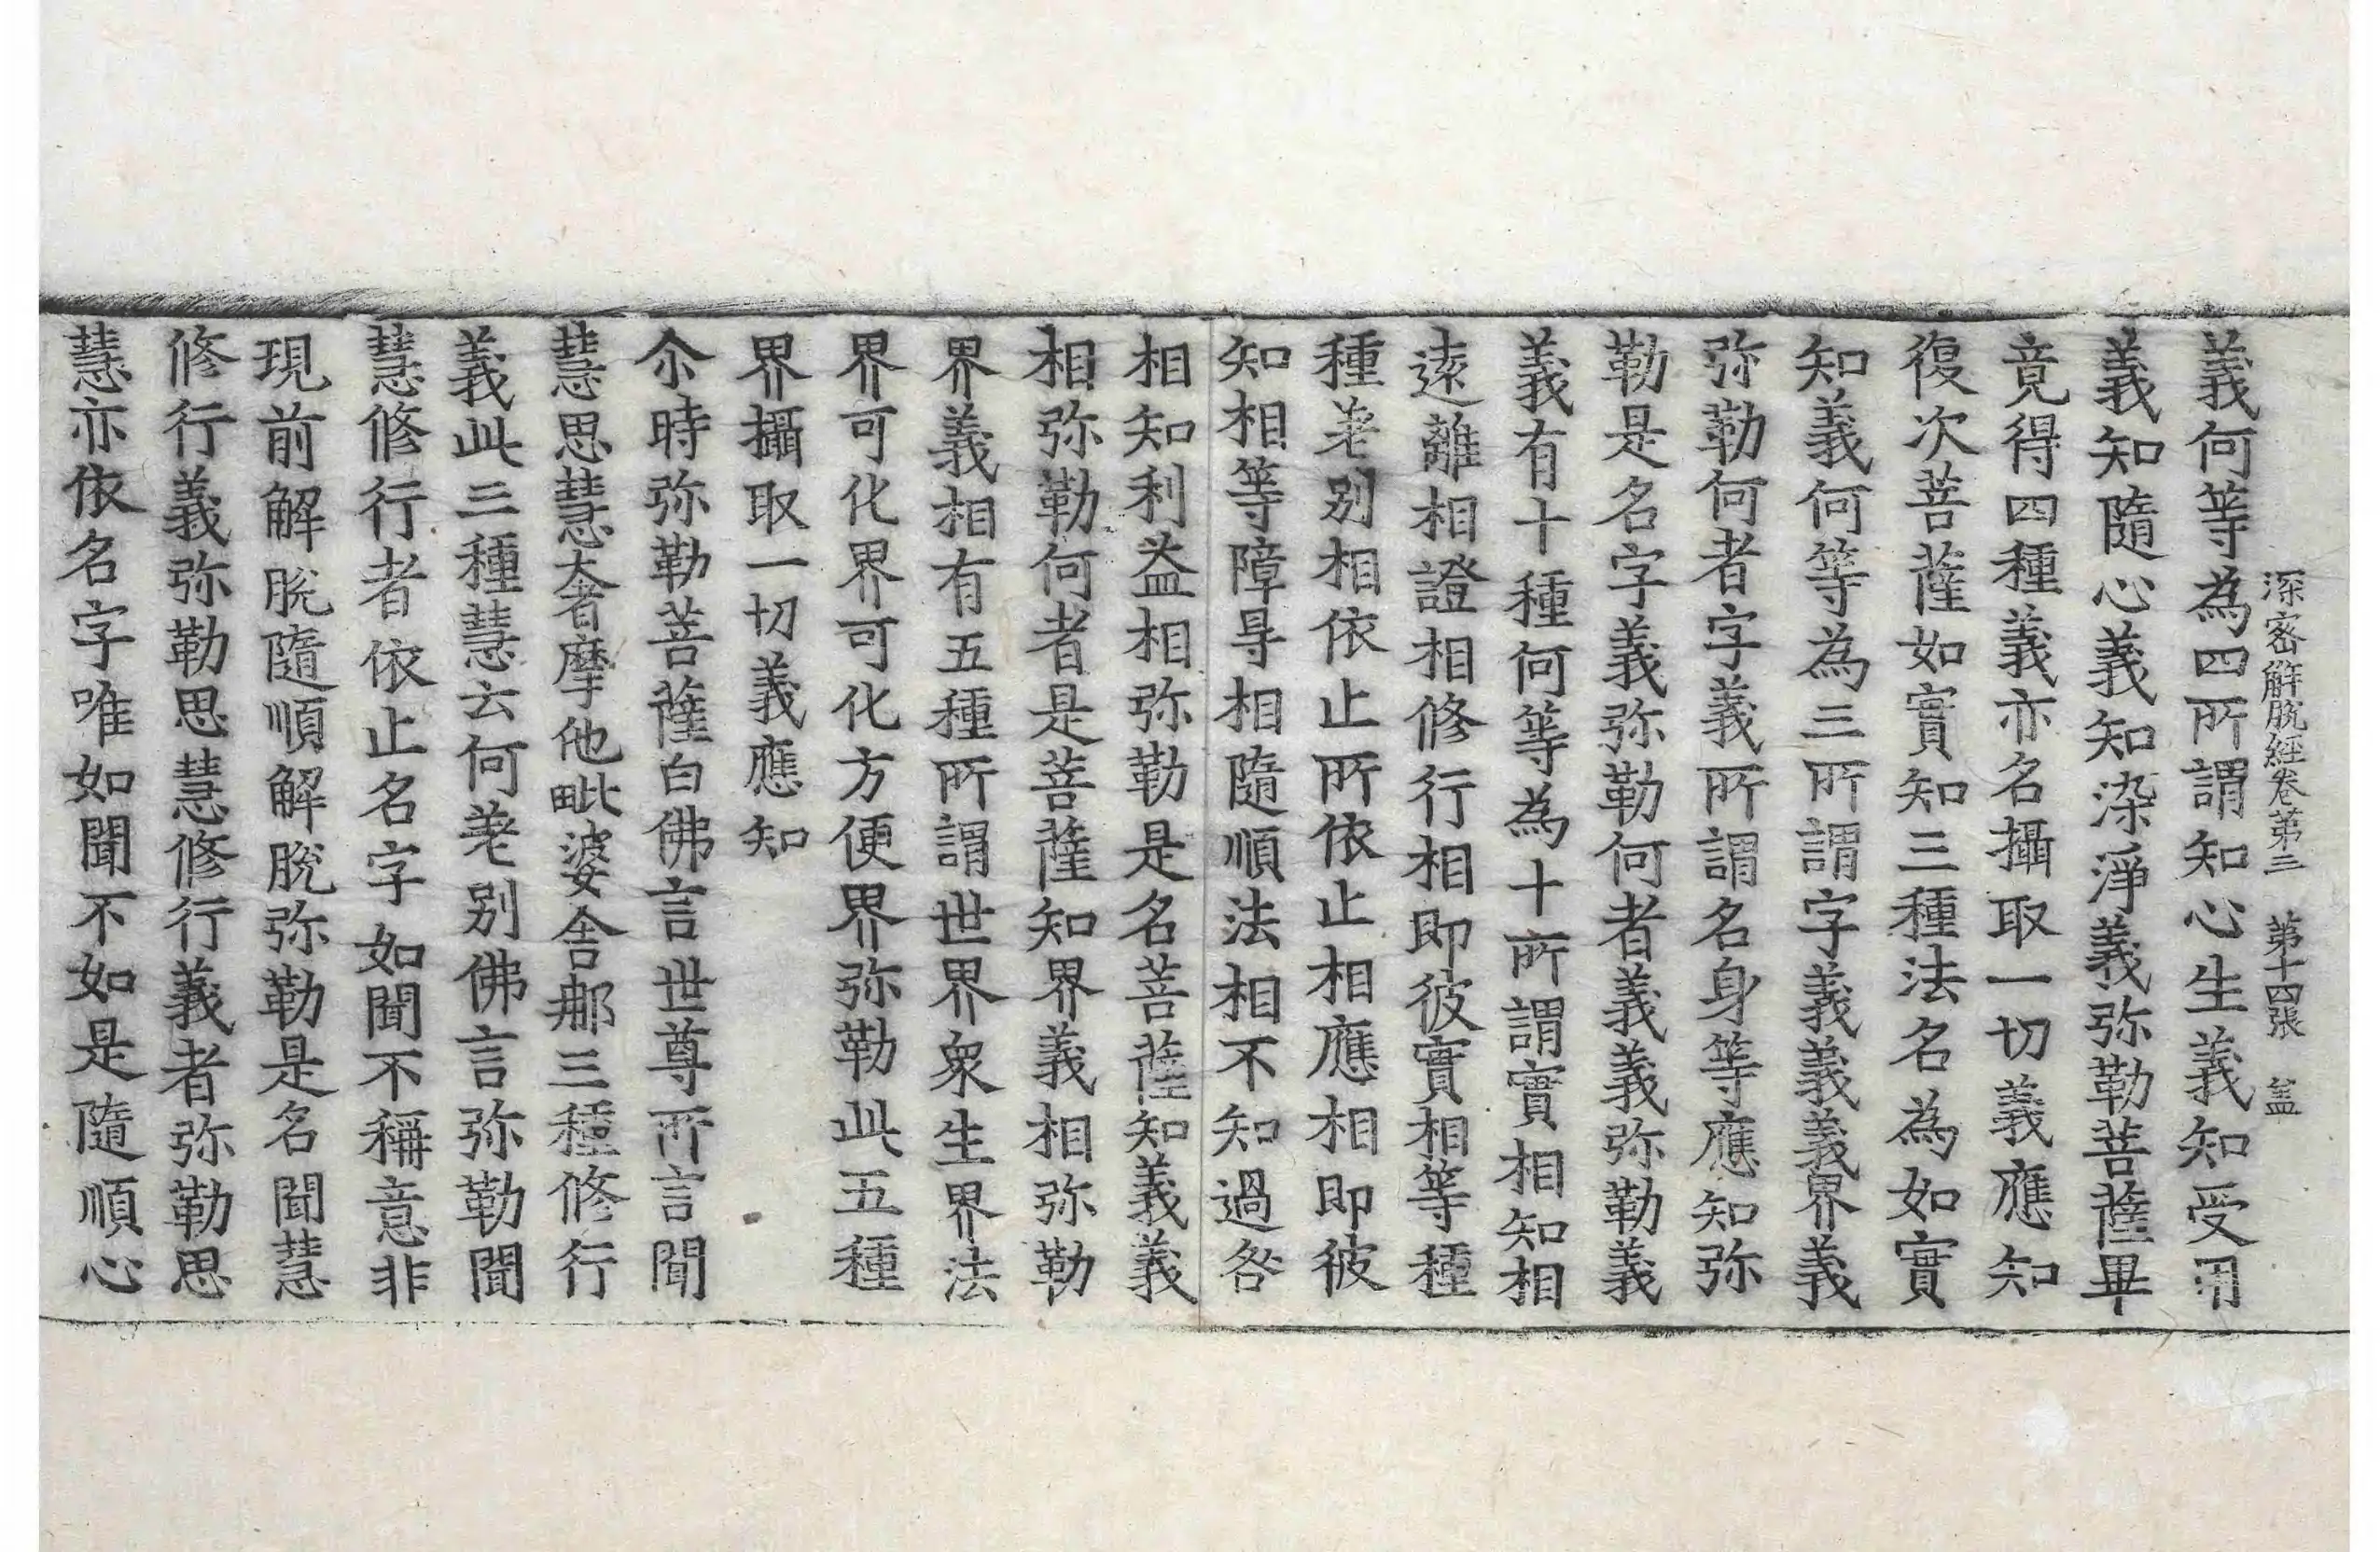 深密解脫經卷第三　第十四張　盖
義何等為四所謂知心生義知受用
義知隨心義知染淨義弥勒菩薩畢
竟得四種義亦名攝取一切義應知
復次菩薩如實知三種法名為如實
知義何等為三所謂字義義義界義
弥勒何者字義所謂名身等應知弥
勒是名字義弥勒何者義義弥勒義
義有十種何等為十所謂實相知相
遠離相證相修行相即彼實相等種
種差別相依止所依止相應相即彼
知相等障㝵相隨順法相不知過咎
相知利益相弥勒是名菩薩知義義
相弥勒何者是菩薩知界義相弥勒
界義相有五種所謂世界衆生界法
界可化界可化方便界弥勒此五種
界攝取一切義應知
尒時弥勒菩薩白佛言世尊所言聞
慧思慧奢摩他毗婆舍那三種修行
義此三種慧云何差別佛言弥勒聞
慧修行者依止名字如聞不稱意非
現前解脫隨順解脫弥勒是名聞慧
修行義弥勒思慧修行義者弥勒思
慧亦依名字唯如聞不如是隨順心